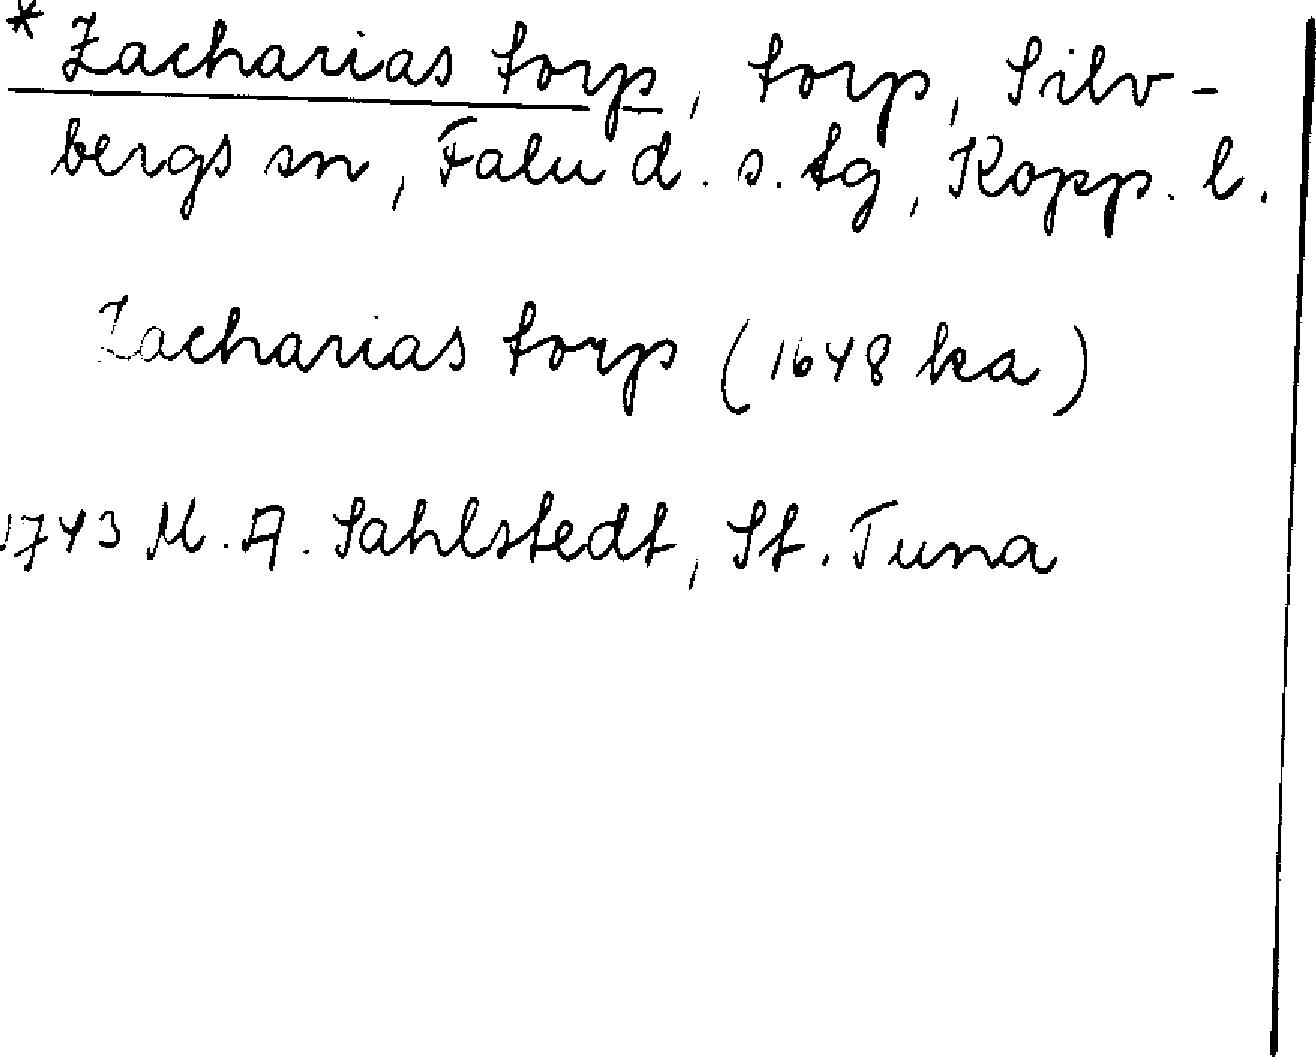 * Zacharias torp, torp, Silv-
bergs sn, Falu d. s. tg, Kopp. l.
Zacharias torp (1648 ka)
1743 M. A. Sahlstedt, St. Tuna